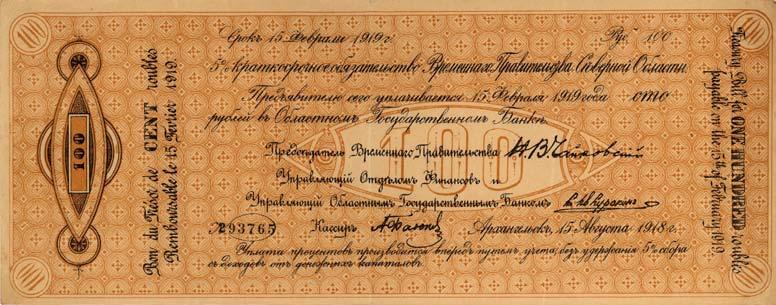 Срокъ 15 Февраля 1919 г.
Руб. 100
5% краткосрочное обязательство Временнаго Правительства Сѣверной Области.
Предъявителю сего уплачивается 15 Февраля 1919 года сто
рублей въ Областномъ Государственномъ Банкѣ.
Предсѣдатель Временнаго Правительства Н. В. Чайковский
Управляющій Отдѣломъ Финансовъ и
Управляющій Областнымъ Государственнымъ Банкомъ
293765
Кассиръ,
Архангельскъ, 15 Августа 1918 г.
Уплата процентовъ производится впередъ путемъ учета, безъ удержанія 5% сбора
съ доходовъ отъ денежныхъ капиталовъ.
Bon du Trésor de CENT roubles
Remboursable le 15 Février 1919.
100
Treasury Bill for ONE HUNDRED roubles
payable on the 15th of February 1919
100
100
100
100
100